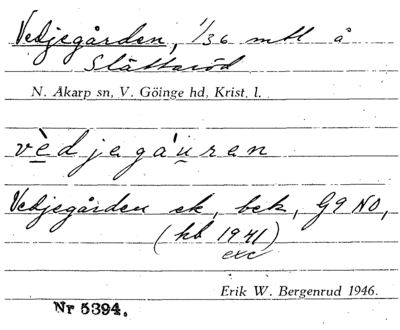 Vedjegården, 1/36 mtl å
Slättaröd
N. Åkarp sn, V. Göinge hd, Krist. l.
vèdjegá'uren
Vedjegården ek, bek, G9 NO,
(hb 1941)
exc
Erik W. Bergenrud 1946.
Nr 5394.